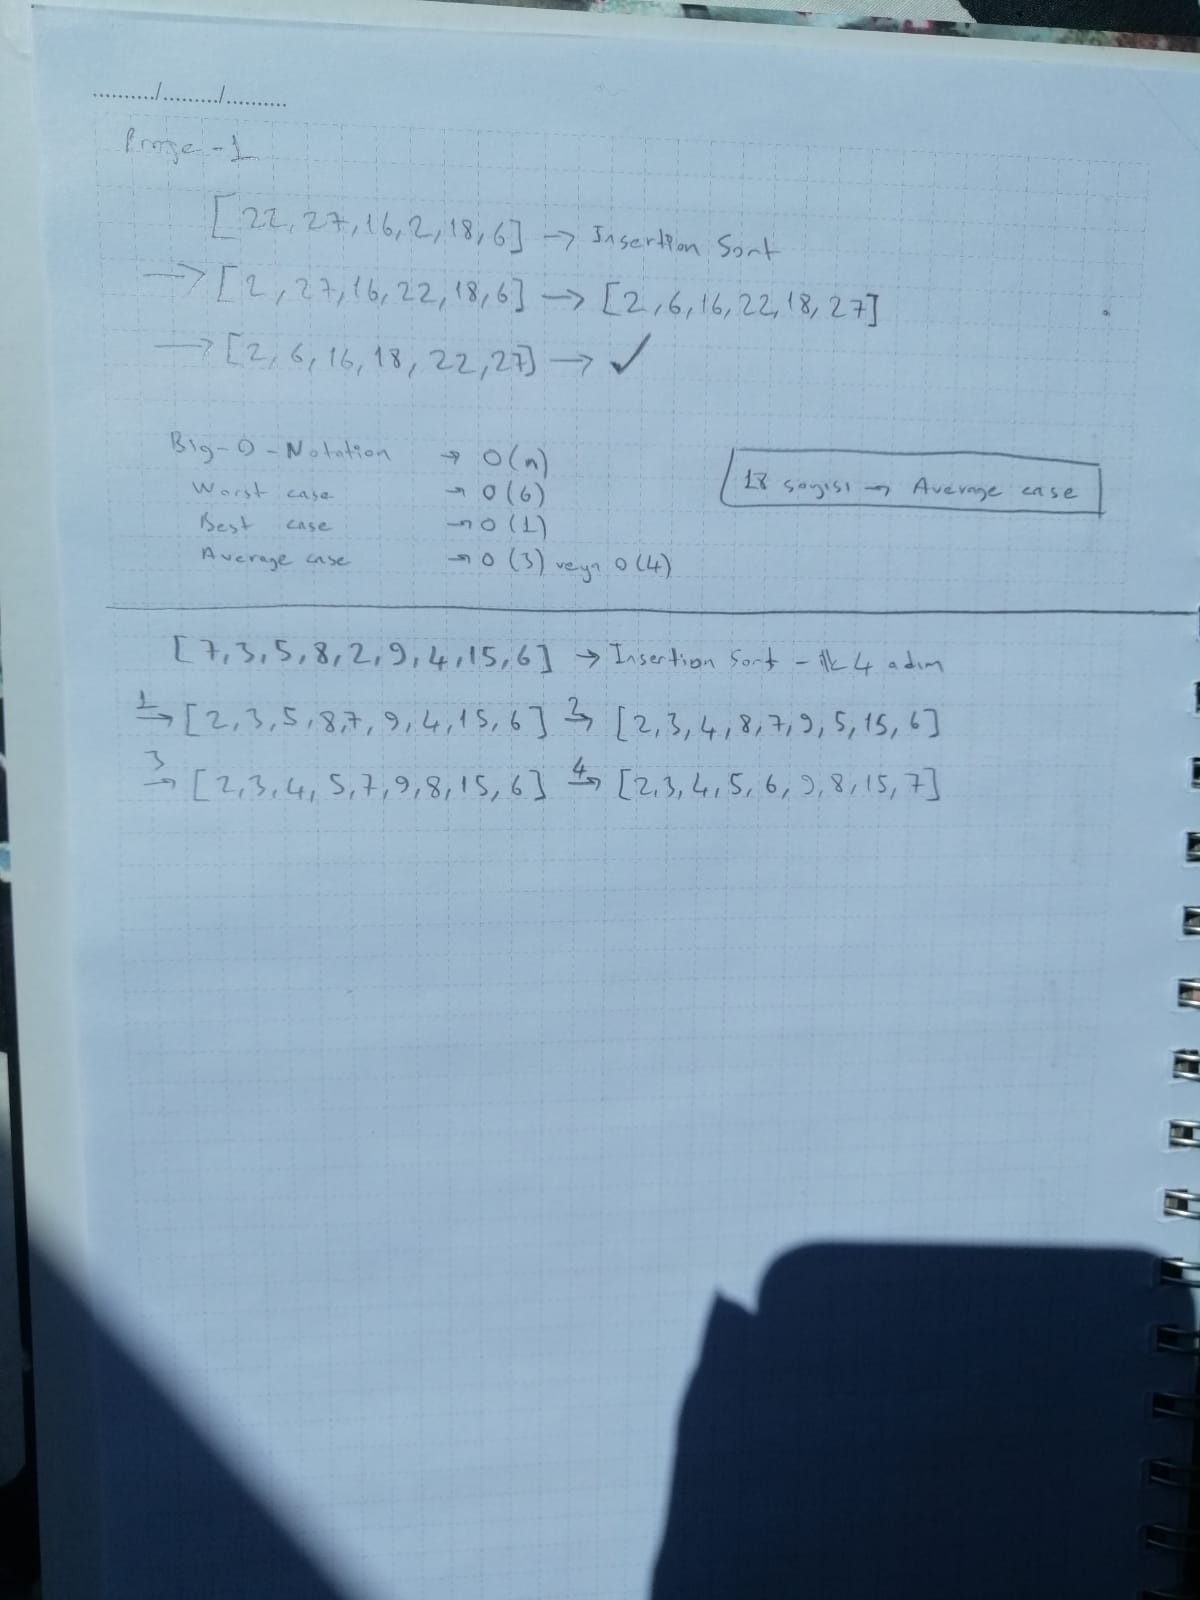 ........../........./..........
Proje-1
[22,27,16,2,18,6] → Insertion Sort
→ [2,27,16,22,18,6] → [2,6,16,22,18,27]
→ [2,6,16,18,22,27] → ✓
Big-O-Notation → O(n)
Worst case → O(6)
Best case → O(1)
Average case → O(3) veya O(4)
18 sayısı → Average case
[7,3,5,8,2,9,4,15,6] → Insertion Sort - ilk 4 adım
1→ [2,3,5,8,7,9,4,15,6] 2→ [2,3,4,8,7,9,5,15,6]
3→ [2,3,4,5,7,9,8,15,6] 4→ [2,3,4,5,6,9,8,15,7]